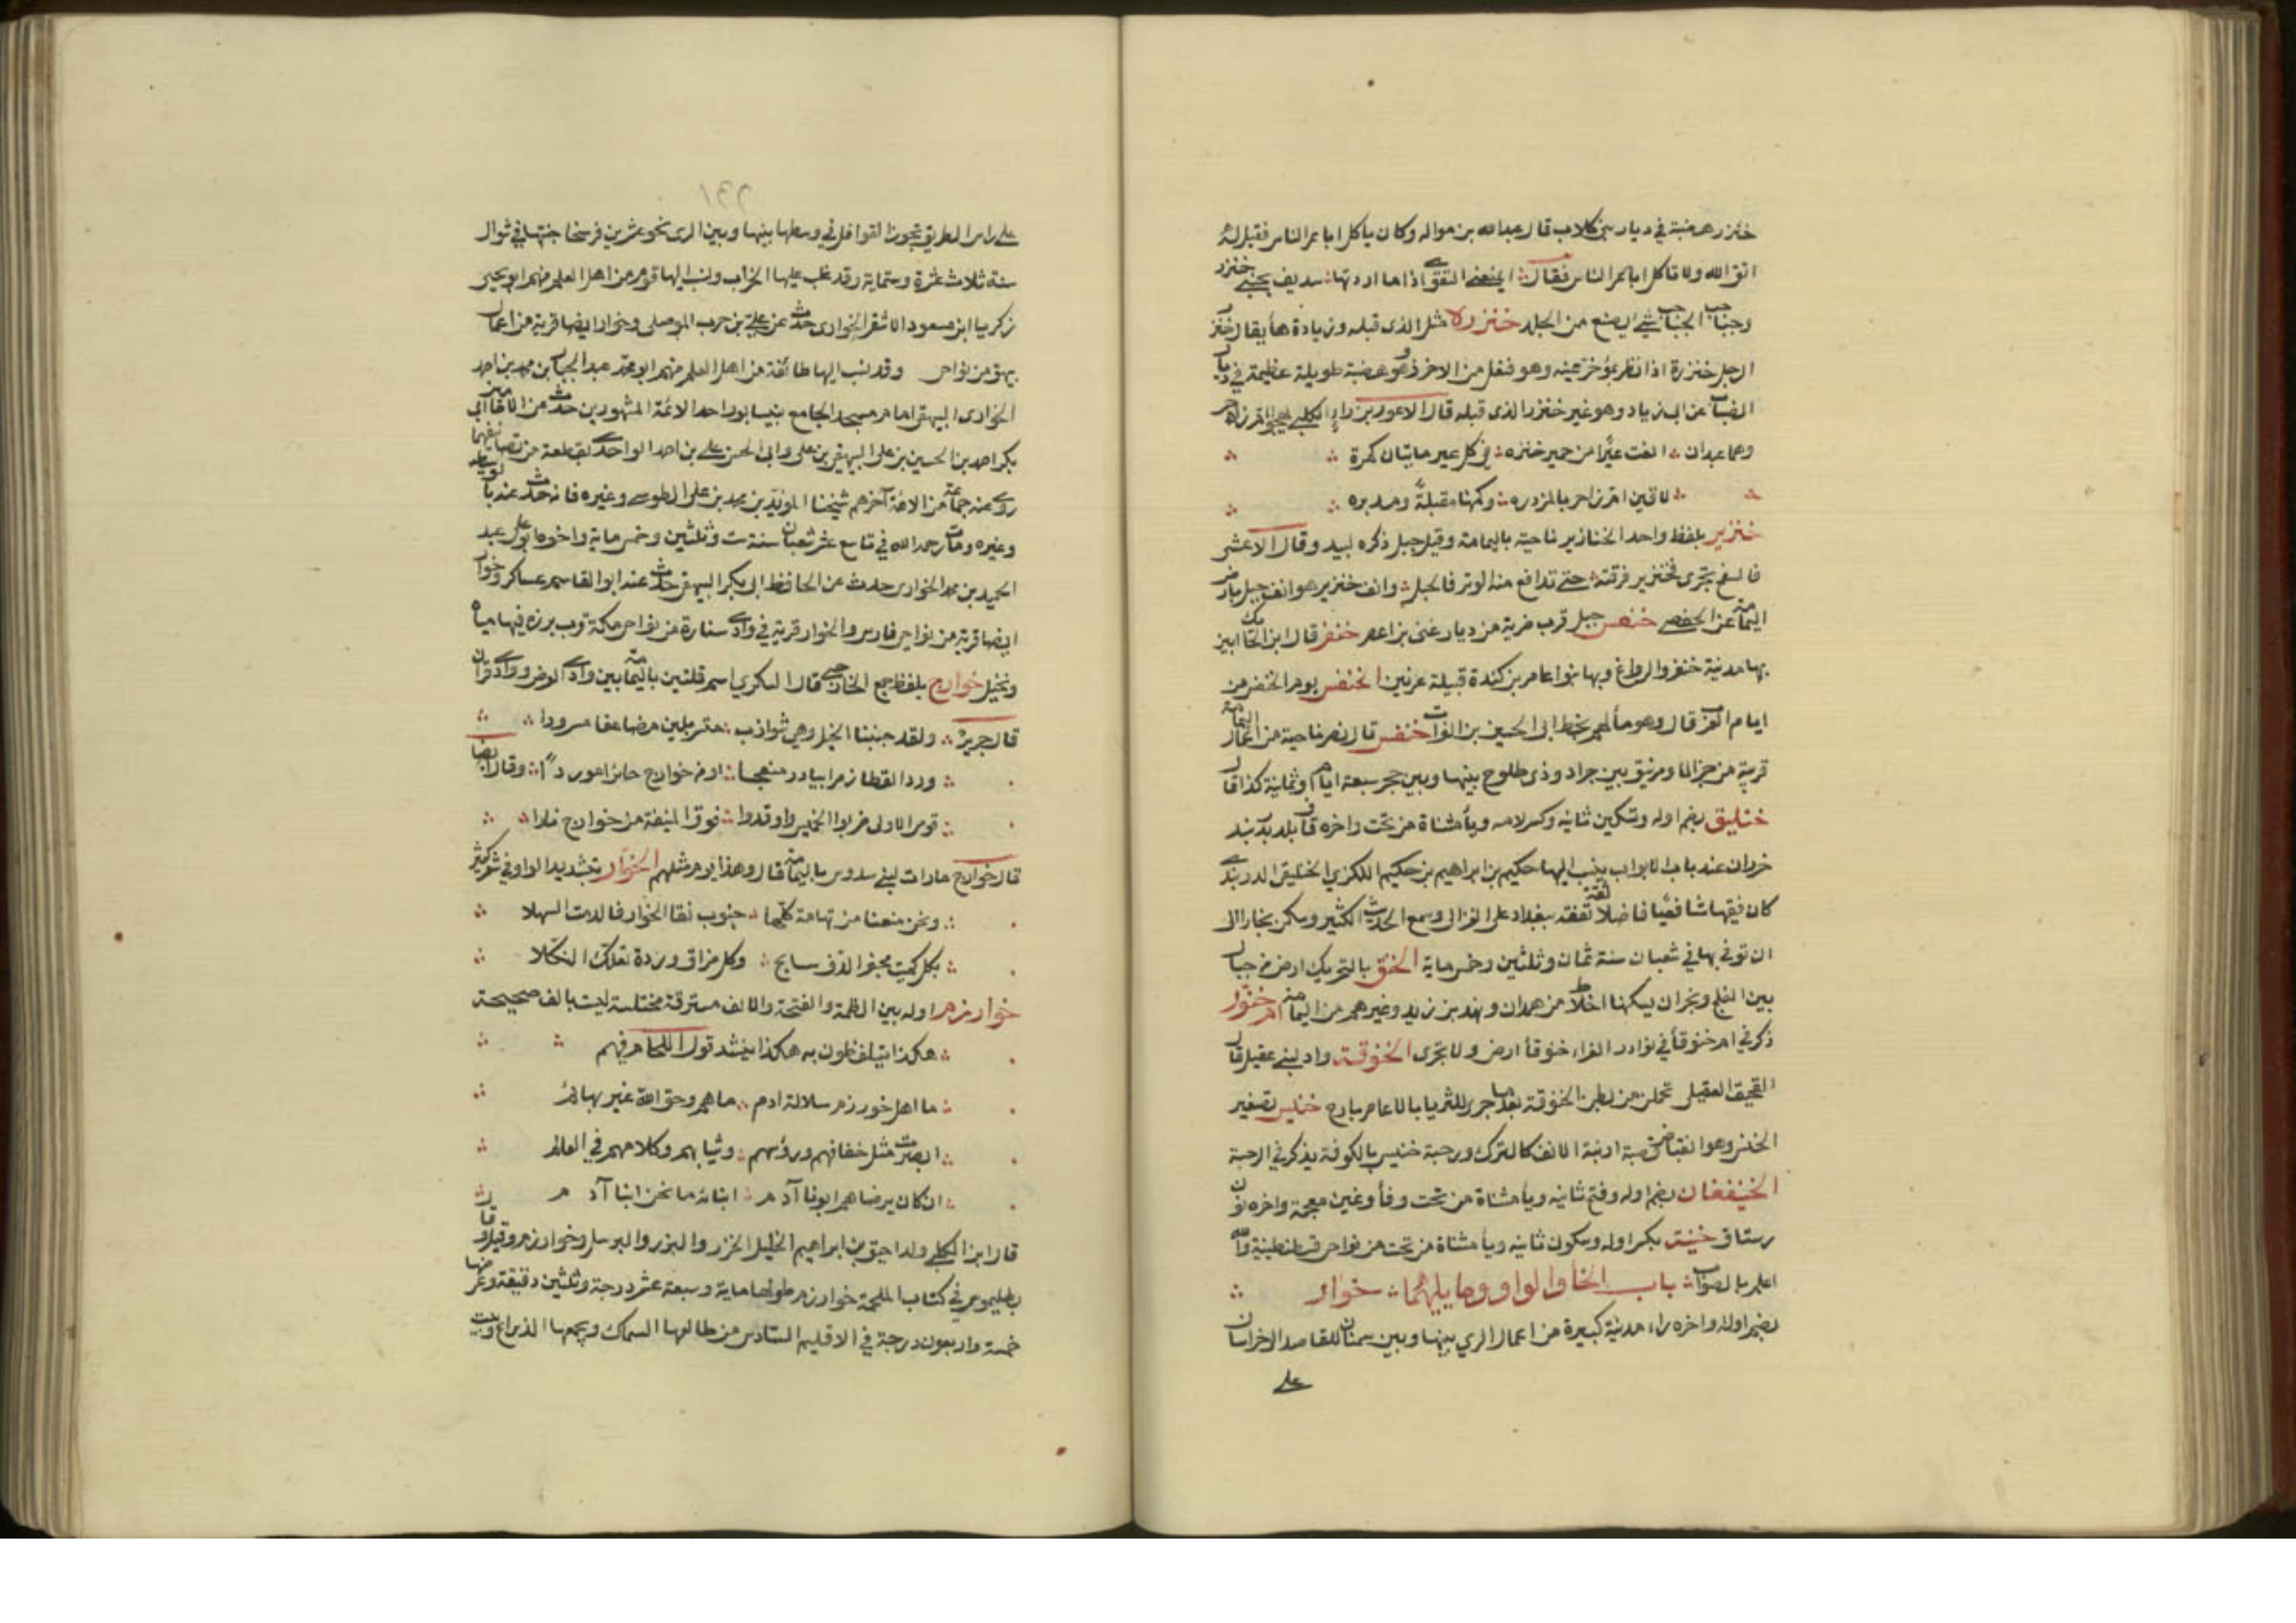 خنزر هضبة في ديار بني كلاب قال عبد الله بن نواله وكان يأكل اباعر الناس فقيل له
اتق الله ولا تاكل اباعر الناس فقال ايمنعني التقوى اذا ما اردتها سديف بجنبي خنزر
وجباجب الجباجب شي يصنع من الجلد خنزرة مثل الذي قبله وزيادة هأ يقال خنزر
الرجل خنزرة اذا نظر بمؤخر عينه وهو فنعل من الاخزر وهو هضبة طويلة عظيمة في ديار
الضباب عن ابي زياد وهو غير خنزر الذي قبله قال الاعور بن براء الكلبي يهجو ام زاجر
وهما عبدان انعت عيرا من حمير خنزره في كل عير مايتان كمرة
لاقين ام زاجر بالمزدره وكمنها مقبلة ومدبره
خنزير بلفظ واحد الخنازير ناحية باليمامة وقيل جبل ذكره لبيد وقال الاعشى
فالسفح يجري فخنزير فرقته حتى تدافع منه الوتر فالحبل وانف خنزير هو انف جبل بارض
اليمامة عن الحفصي خنفس جبل قرب ضرية من ديار غنى بن اعصر خنفر قال ابن الحايك ابين
بها مدينة خنفر والرواغ وبها بنوا عامر بن كندة قبيلة عرنين الخنفس يوم الخنفس من
ايام العرب قال وهو ماء لهم بخط ابى الحسين بن الفرات خنفس قال نصر ناحية من اعمال اليمامة
قريبة من خزالا ومريفق بين جراد وذى طلوح بينها وبين حجر سبعة ايام او ثمانية كذا قال
خنليق بضم اوله وتسكين ثانيه وكسر لامه ويا مثناة من تحت واخره قاف بلد بدربند
خزران عند باب الابواب ينسب اليها حكيم بن ابراهيم بن حكيم اللكزي الخنليقي الدربندي
كان فقيها شافعيا فاضلا ثقة تفقه ببغداد على الغزالى وسمع الحديث الكثير وسكن بخارا الى
ان توفى بها في شعبان سنة ثمان وثلثين وخمس ماية الخنق بالتحريك ارض من جبال
بين الفلج ونجران يسكنها اخلاط من همدان ونهد بن زيد وغيرهم من اليمامة ام خنور
ذكر في ام خنوقاء في نوادر الفراء خنوقا ارض ولا تجرى الخنوقة واد لبني عقيل قال
القحيف العقيلي تحملن من بطن الخنوقة بعدما جرى للثريا بالاعاصر بارح خنيس تصغير
الخنس وهو انقباض قصبة ارنبة الانف كالترك ورحبة خنيس بالكوفة يذكر في الرحبة
الخنيفغان بضم اوله وفتح ثانيه ويا مثناة من تحت وفأ وغين معجمة واخره نون
رستاق خنيت بكسر اوله وسكون ثانيه ويا مثناة من تحت من نواحى قسطنطينية والله
اعلم بالصواب باب الخا والواو وما يليهما خوار
بضم اوله واخره راء مدينة كبيرة من اعمال الري بينها وبين سمنان للقاصد الى خراسان
على
على راس الطريق تجوز القوافل في وسطها بينها وبين الري نحو عشرين فرسخا جئتها في شوال
سنة ثلاث عشرة وستماية وقد غلب عليها الخراب ونسب اليها قوم من اهل العلم منهم ابو يحيى
زكريا ابن مسعود الاشقر الخوارى حدث عن على بن حرب الموصلى وخوار ايضا قرية من اعمال
بيهق من نواحى وقد نسب اليها طائفة من اهل العلم منهم ابو محمد عبد الجبار بن محمد بن احمد
الخوارى البيهقى امام مسجد الجامع بنيسابور احد الائمة المشهورين حدث عن الامامين ابي
بكر احمد بن الحسين بن على البيهقى بن على وابى الحسن على بن احمد الواحدى بقطعة من تصانيفهما
روى عنه جماعة من الائمة آخرهم شيخنا المؤيد بن محمد بن على الطوسي وغيره فانه حدث عنه بالوسيط
وغيره ومات رحمه الله في تاسع عشر شعبان سنة ست وثلثين وخمس ماية واخوه ابو على عبد
الحميد بن محمد الخوارى حدث عن الحافظ ابى بكر البيهقى حدث عنه ابو القاسم عساكر وخوار
ايضا قرية من نواحى فارس والخوار قرية في وادى ستارة من نواحى مكة قرب برزة فيها مياه
ونخيل خوارج بلفظ جمع الخارجى قال السكري اسم قلتين باليمامة بين وادى العرض ووادى قران
قال جرير ولقد جنبنا الخيل وهى شوازب متسربلين مضاعفا مسرودا
ورد القطا زمرا يبادر منعجا او من خوارج حائرا مورودا وقال ايضا
قوم الاولى ضربوا الخميس واوقدوا فوق المنيفة من خوارج نارا
قال خوارج هارات لبني سدوس باليمامة قال وهذا يوم مثلهم الخوار بتشديد الواو في شعر كثير
ونحن منعنا من تهامة كلها جنوب نقا الخوار فالدمث السهلا
بكل كميت مجفر الدف سابح وكل مزاق وردة تعلك النكلا
خوارزم اوله بين الضمة والفتحة والالف مسترقة مختلسة ليست بالف صحيحة
هكذا يتلفظون به هكذا ينشد قول اللحام فيهم
ما اهل خورزم سلالة ادم ما هم وحق الله غير بهائم
ابصرت مثل خفافهم ورؤسهم وثيابهم وكلامهم في العالم
ان كان يرضاهم ابونا آدم ابنائه ما نحن ابنا آدم
قال ابن الكلبي ولد اسحق بن ابراهيم الخليل الخزر والبزر والبرسل وخوارزم وقيل قال
بطليموس في كتاب الملحمة خوارزم طولها ماية وسبعة عشر درجة وثلثين دقيقة وعرضها
خمسة واربعون درجة في الاقليم السادس من طالعها السماك ويجمعها الذراع وبيت